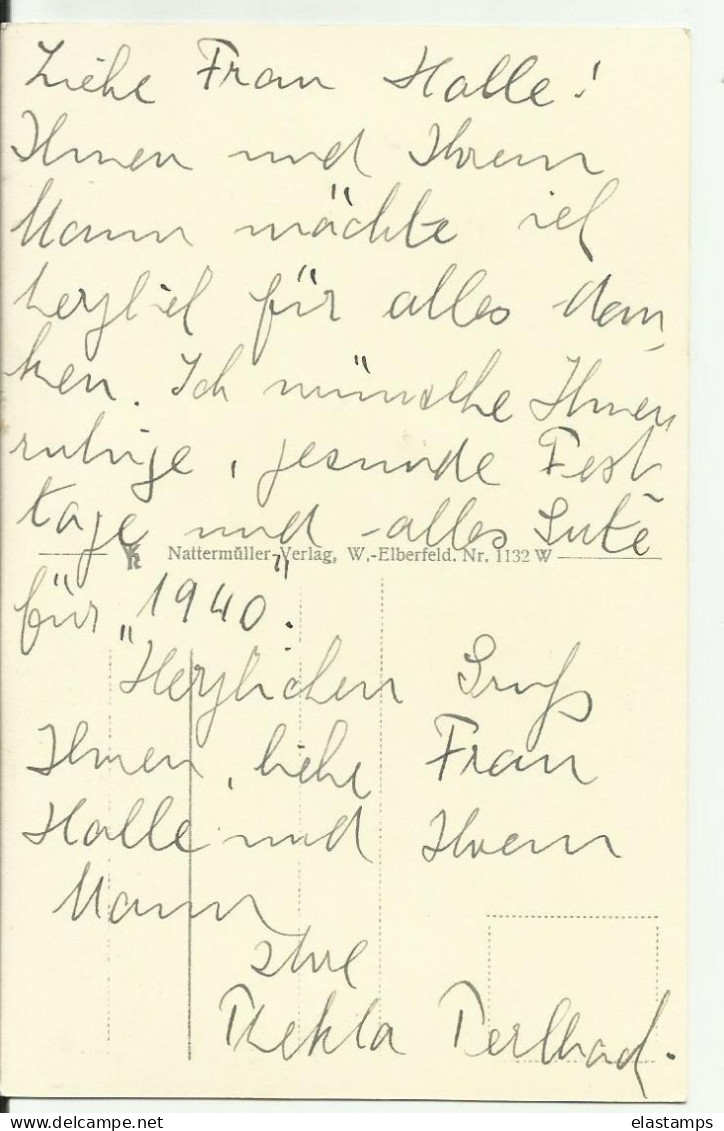 Liebe Frau Halle!
Ihnen und Ihrem
Mann möchte ich
herzlich für alles dan-
ken. Ich wünsche Ihnen
ruhige, gesunde Fest
tage und alles Gute
Nattermüller-Verlag, W.-Elberfeld. Nr. 1132 W
für „1940".
Herzlichen Gruß
Ihnen, liebe Frau
Halle und Ihrem
Mann
Ihre
Thekla
delcampe.net
elastamps